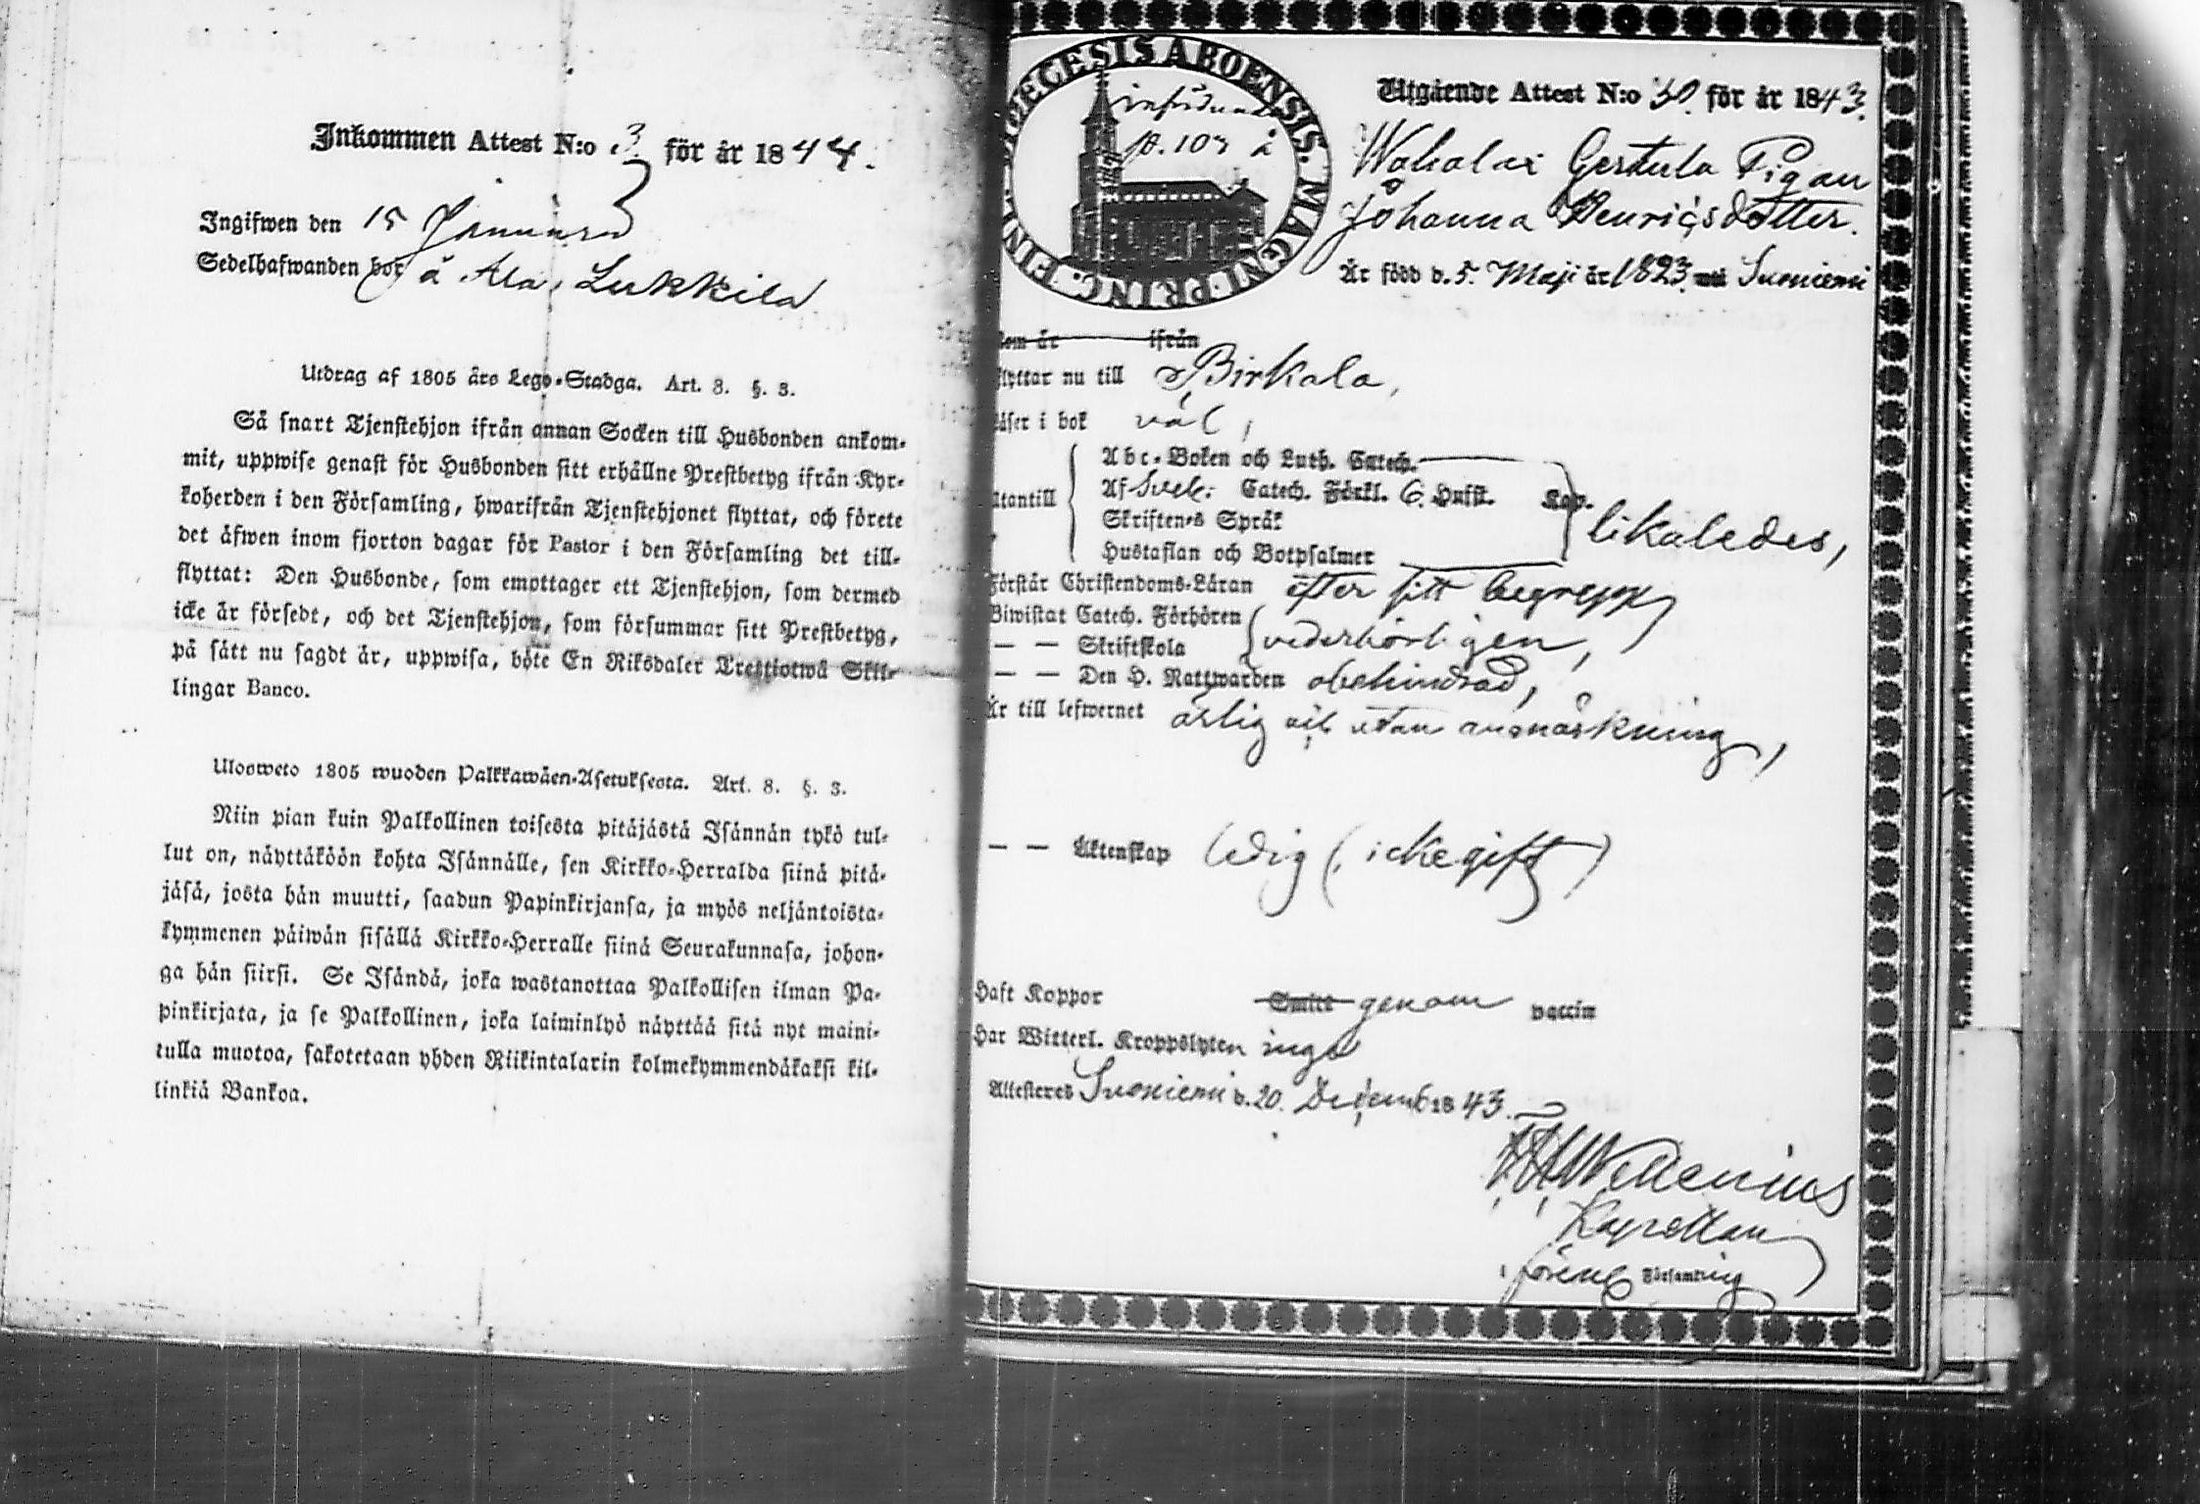 Inkommen Attest N:o 3 för år 1844.
Ingifwen den 15 Januari
Sedelhafwanden bor å Ala, Lukkila
Utdrag af 1805 års Lego-Stadga. Art. 8. §. 3.
Så snart Tjenstehjon ifrån annan Socken till Husbonden ankom-
mit, uppwise genast för Husbonden sitt erhållne Prestbetyg ifrån Kyr-
koherden i den Församling, hwarifrån Tjenstehjonet flyttat, och förete
det åfwen inom fjorton dagar för Pastor i den Församling det till-
flyttat: Den Husbonde, som emottager ett Tjenstehjon, som dermed
icke är försedt, och det Tjenstehjon, som försummar sitt Prestbetyg,
på sätt nu sagdt är, uppwisa, böte En Riksdaler Trettiotwå Skil-
lingar Banco.
Ulosweto 1805 wuoden Palkkawäen-Asetuksesta. Art. 8. §. 3.
Niin pian kuin Palkollinen toisesta pitäjästä Isännän tykö tul-
lut on, näyttäköön kohta Isännälle, sen Kirkko-Herralda siinä pitä-
jäsä, josta hän muutti, saadun Papinkirjansa, ja myös neljäntoista-
kymmenen päiwän sisällä Kirkko-Herralle siinä Seurakunnasa, johon-
ga hän siirsi. Se Isändä, joka wastanottaa Palkollisen ilman Pa-
pinkirjata, ja se Palkollinen, joka laiminlyö näyttää sitä nyt maini-
tulla muotoa, sakotetaan yhden Riikintalarin kolmekymmendäkaksi kil-
linkiä Bankoa.
DIOECESIS ABOENSIS. MAGNI. PRINC. FINL.
införd
p. 103 å
Utgående Attest N:o 30 för år 1843.
Pigan
Johanna Henricsdotter.
Är född d. 5. Maji år 1823 Suoniemi
kom år ifrån
flyttar nu till Birkala,
Läser i bok väl,
Abc-Boken och Luth. Catech.
utantill Af Sveb. Catech. Förkl. 6. Hufst. Kap. likaledes,
Skriftenes Språk
Hustaflan och Botpsalmer
Förstår Christendoms-Läran efter sitt begrepp,
Biwistat Catech. Förhören
— — Skriftskola vederbörligen,
— — Den H. Nattwarden obehindrad,
Är till lefwernet ärlig och utan anmärkning,
— — Äktenskap ledig (icke gift)
Haft Koppor Smitt genom vaccin
Har Witterl. Kroppslyten inga
Attesteres Suoniemi d. 20. Decemb 1843.
Kapellan
i fören. Församling